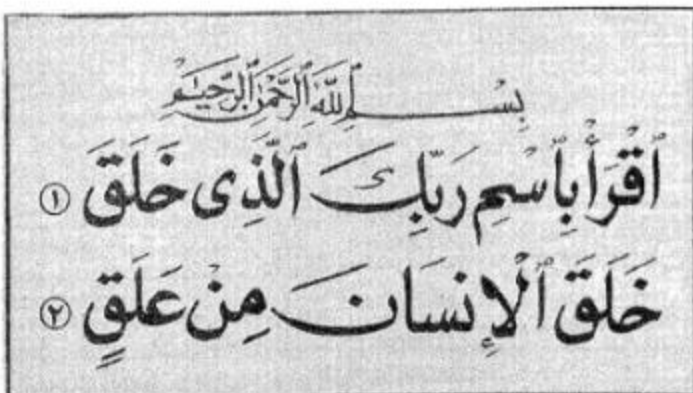 بِسْمِ ٱللَّهِ ٱلرَّحْمَٰنِ ٱلرَّحِيمِ
ٱقْرَأْ بِٱسْمِ رَبِّكَ ٱلَّذِى خَلَقَ ١
خَلَقَ ٱلْإِنسَانَ مِنْ عَلَقٍ ٢